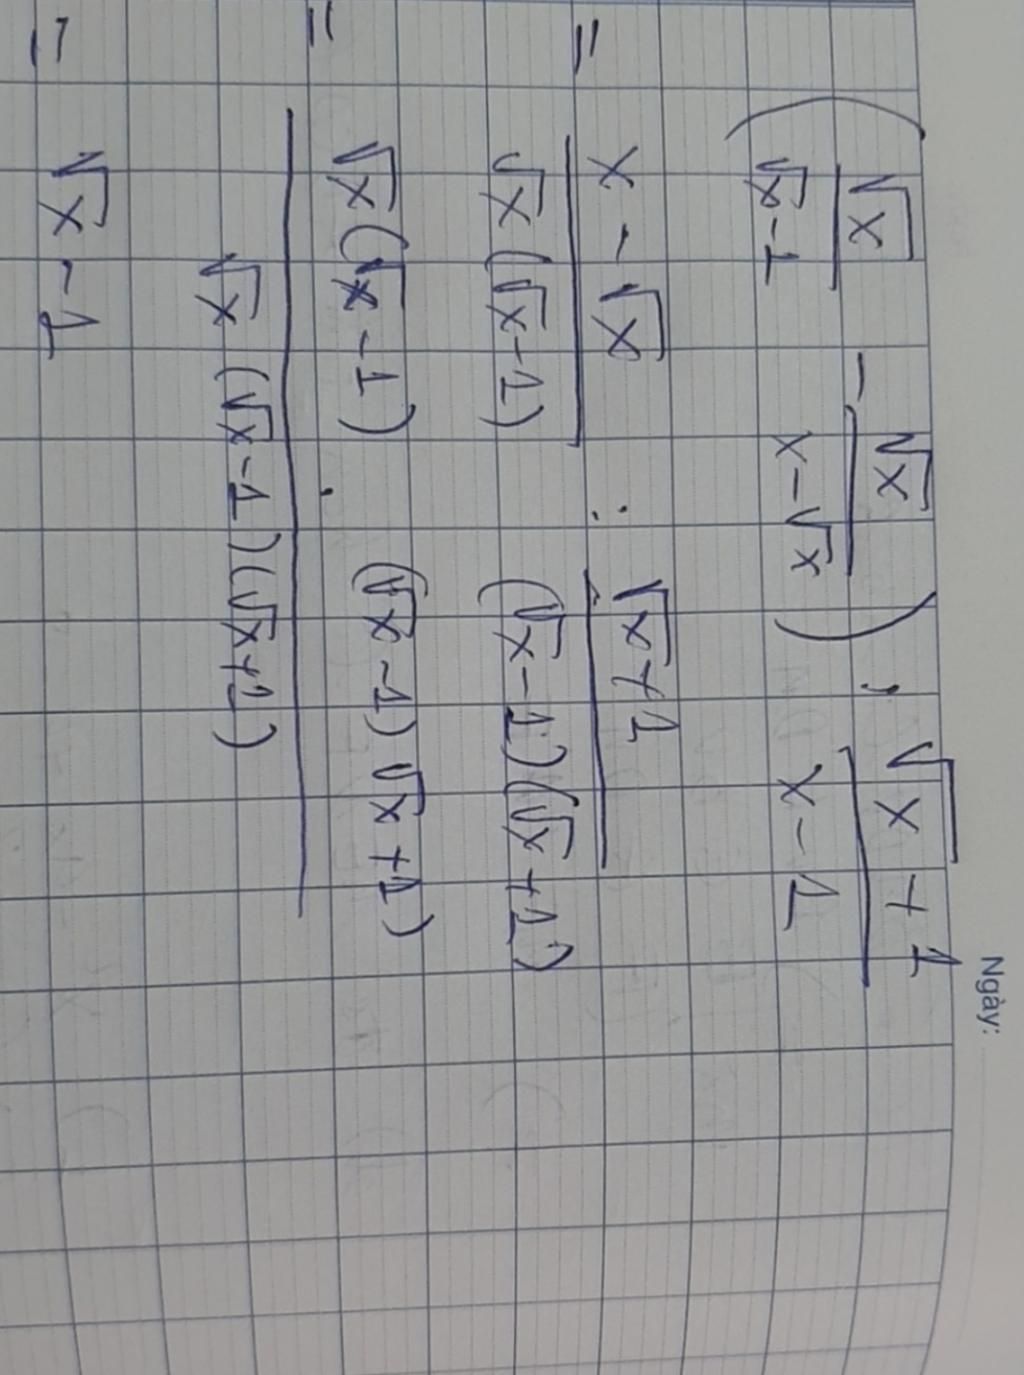 Ngày:
(√x / (√x - 1) - √x / (x - √x)) : (√x + 1) / (x - 1)
= (x - √x) / (√x (√x - 1)) : (√x + 1) / ((√x - 1)(√x + 1))
= √x (√x - 1) . (√x - 1) √x + 1) / √x (√x - 1)(√x + 1)
= √x - 1